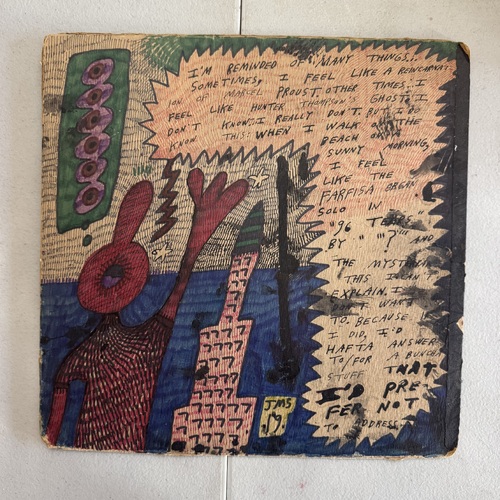 I'M REMINDED OF MANY THINGS...
SOMETIMES, I FEEL LIKE A REINCARNAT-
ION OF MARCEL PROUST. OTHER TIMES, I
FEEL LIKE HUNTER THOMPSON'S GHOST. I
DON'T KNOW. I REALLY DON'T. BUT I DO
KNOW THIS: WHEN I WALK ON THE
BEACH ON A
SUNNY MORNING,
I FEEL
LIKE THE
FARFISA ORGAN
SOLO IN
"96 TEARS"
BY "?" AND
THE MYSTERIANS
THIS I CAN'T
EXPLAIN. I
DON'T WANT
TO. BECAUSE IF
I DID, I'D
HAFTA ANSWER
TO/FOR A BUNCHA
STUFF THAT
I'D PRE-
FER NOT
TO ADDRESS...
JMS
19.